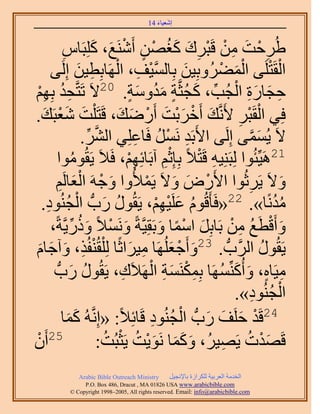 إشعياء 14
طُرِحْتَ مِنْ قَبْرِكَ كَغُصْنٍ أَشْنَعَ، كَلِبَاسِ
الْقَتْلَى الْمَضْرُوبِينَ بِالسَّيْفِ، الْهَابِطِينَ إِلَى
حِجَارَةِ الْجُبِّ، كَجُثَّةٍ مَدُوسَةٍ. 20لاَ تَتَّحِدُ بِهِمْ
فِي الْقَبْرِ لأَنَّكَ أَخْرَبْتَ أَرْضَكَ، قَتَلْتَ شَعْبَكَ.
لاَ يُسَمَّى إِلَى الأَبَدِ نَسْلُ فَاعِلِي الشَّرِّ.
21هَيِّئُوا لِبَنِيهِ قَتْلاً بِإِثْمِ آبَائِهِمْ، فَلاَ يَقُومُوا
وَلاَ يَرِثُوا الأَرْضَ وَلاَ يَمْلأُوا وَجْهَ الْعَالَمِ
مُدُنًا». 22«فَأَقُومُ عَلَيْهِمْ، يَقُولُ رَبُّ الْجُنُودِ.
وَأَقْطَعُ مِنْ بَابِلَ اسْمًا وَبَقِيَّةً وَنَسْلاً وَذُرِّيَّةً،
يَقُولُ الرَّبُّ. 23وَأَجْعَلُهَا مِيرَاثًا لِلْقُنْفُذِ، وَآجَامَ
مِيَاهٍ، وَأُكَنِّسُهَا بِمِكْنَسَةِ الْهَلاَكِ، يَقُولُ رَبُّ
الْجُنُودِ».
24قَدْ حَلَفَ رَبُّ الْجُنُودِ قَائِلاً: «إِنَّهُ كَمَا
قَصَدْتُ يَصِيرُ، وَكَمَا نَوَيْتُ يَثْبُتُ: 25أَنْ
Arabic Bible Outreach Ministry الخدمة العربية للكرازة بالإنجيل
P.O. Box 486, Dracut , MA 01826 USA www.arabicbible.com
© Copyright 1998–2005, All rights reserved. Email: info@arabicbible.com